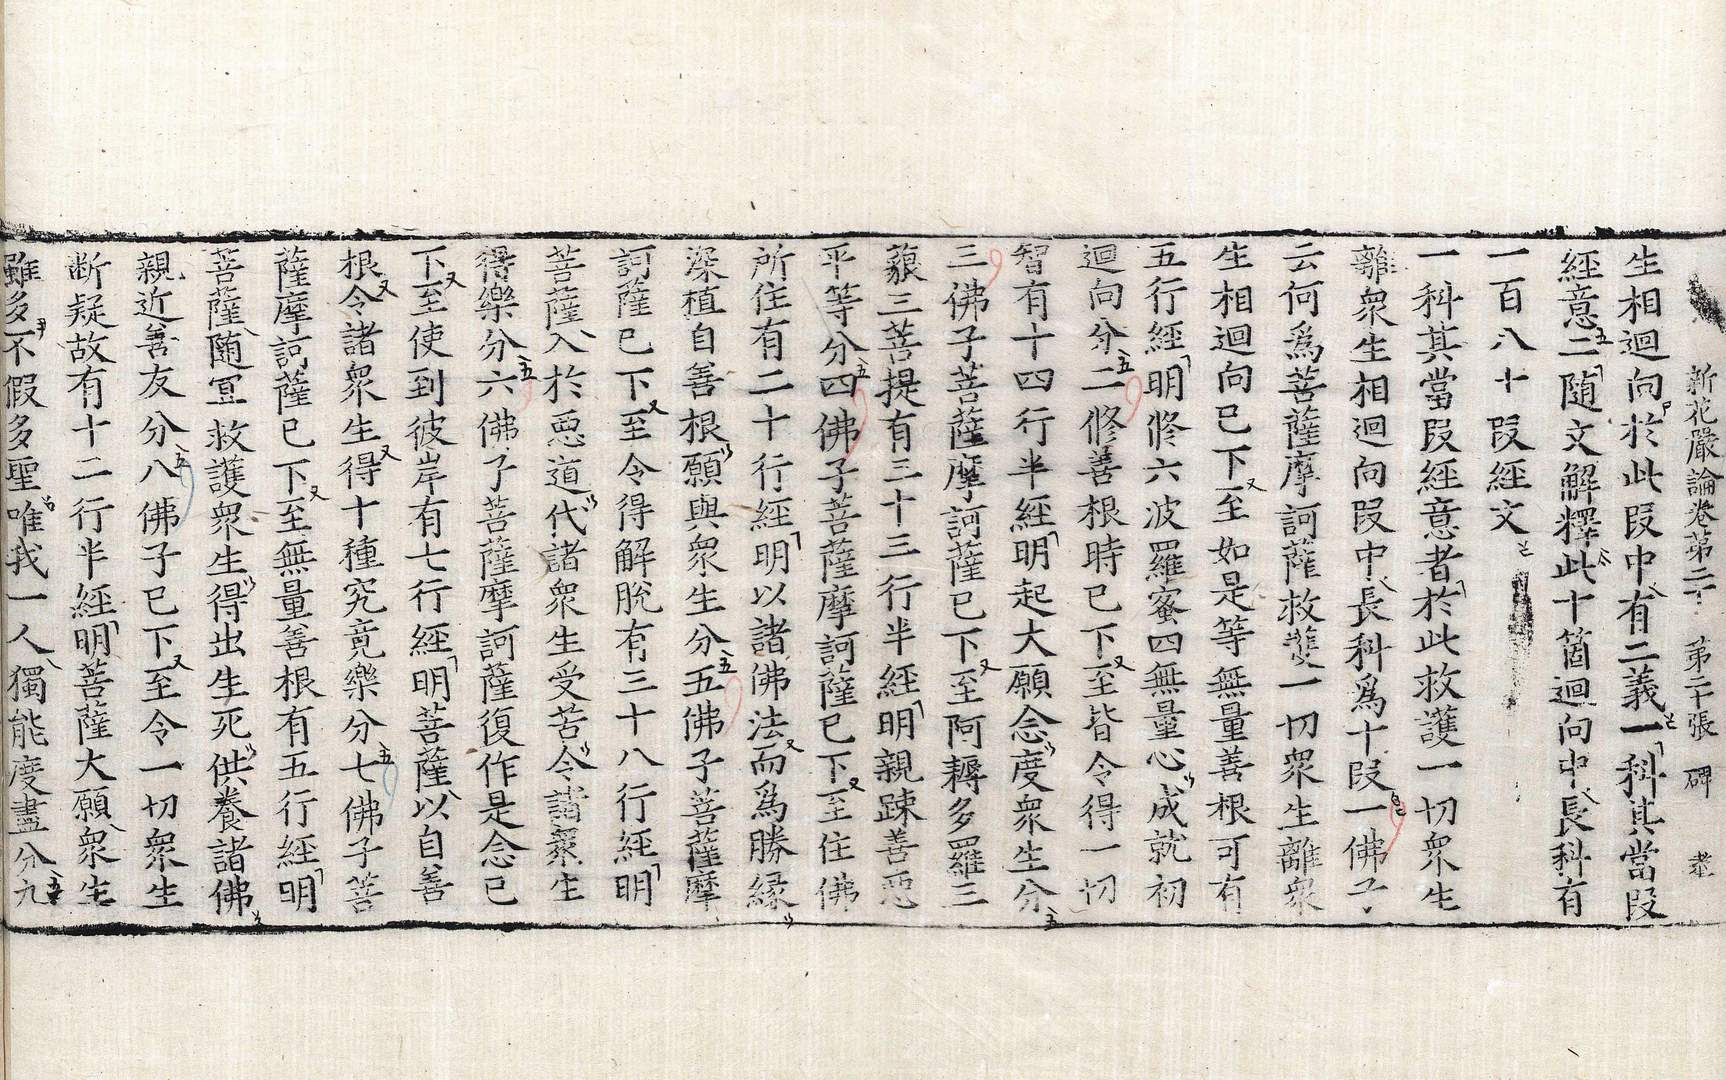 新花嚴論卷第二十　第二十張　碑　老
生相迴向於此叚中有二義一科其當叚
經意二随文解釋此十箇迴向中長科有
一百八十叚經文
一科其當叚經意者於此救護一切衆生
離衆生相迴向叚中長科爲十叚一佛子
云何爲菩薩摩訶薩救護一切衆生離衆
生相迴向已下至如是等無量善根可有
五行經明修六波羅蜜四無量心成就初
迴向分二修善根時已下至皆令得一切
智有十四行半經明起大願念度衆生分
三佛子菩薩摩訶薩已下至阿耨多羅三
藐三菩提有三十三行半經明親踈善惡
平等分四佛子菩薩摩訶薩已下至住佛
所住有二十行經明以諸佛法而爲勝緣
深植自善根願與衆生分五佛子菩薩摩
訶薩已下至令得解脫有三十八行經明
菩薩入於惡道代諸衆生受苦令諸衆生
得樂分六佛子菩薩摩訶薩復作是念已
下至使到彼岸有七行經明菩薩以自善
根令諸衆生得十種究竟樂分七佛子菩
薩摩訶薩已下至無量善根有五行經明
菩薩随冝救護衆生得出生死供養諸佛
親近善友分八佛子已下至令一切衆生
断疑故有十二行半經明菩薩大願衆生
雖多不假多聖唯我一人獨能度盡分九